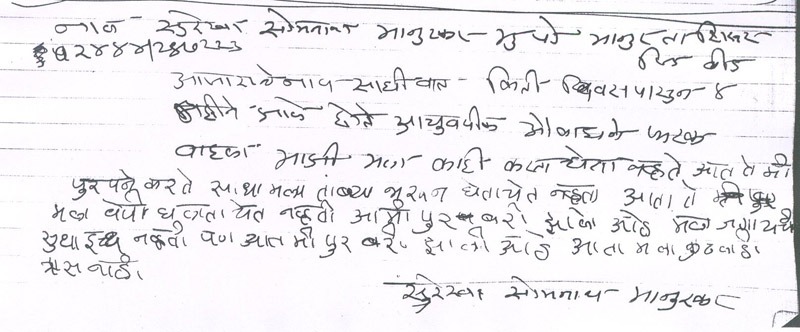 नाव - सुरेखा सोमनाथ मानुरकर मु पो मानुर ता शिरुर
जि बीड
आजाराचे नाव - सांधीवात - किती दिवसापासुन ४
महीने झाले होते आयुर्वेदीक औषधाने फरक
वाटला माझी मला काही करता येत नव्हते आता ते मी
पुर्णपने करते साधा मला तांब्या भरून घेता येत नव्हता आता ते मी
मला येत नव्हती आता मी पुर्ण बरी झाले आहे मला जगायची
सुधा इच्छा नव्हती पण आता मी पुर बरी झाली आहे आता मला कुठलाही
त्रास नाही.
सुरेखा सोमनाथ मानुरकर